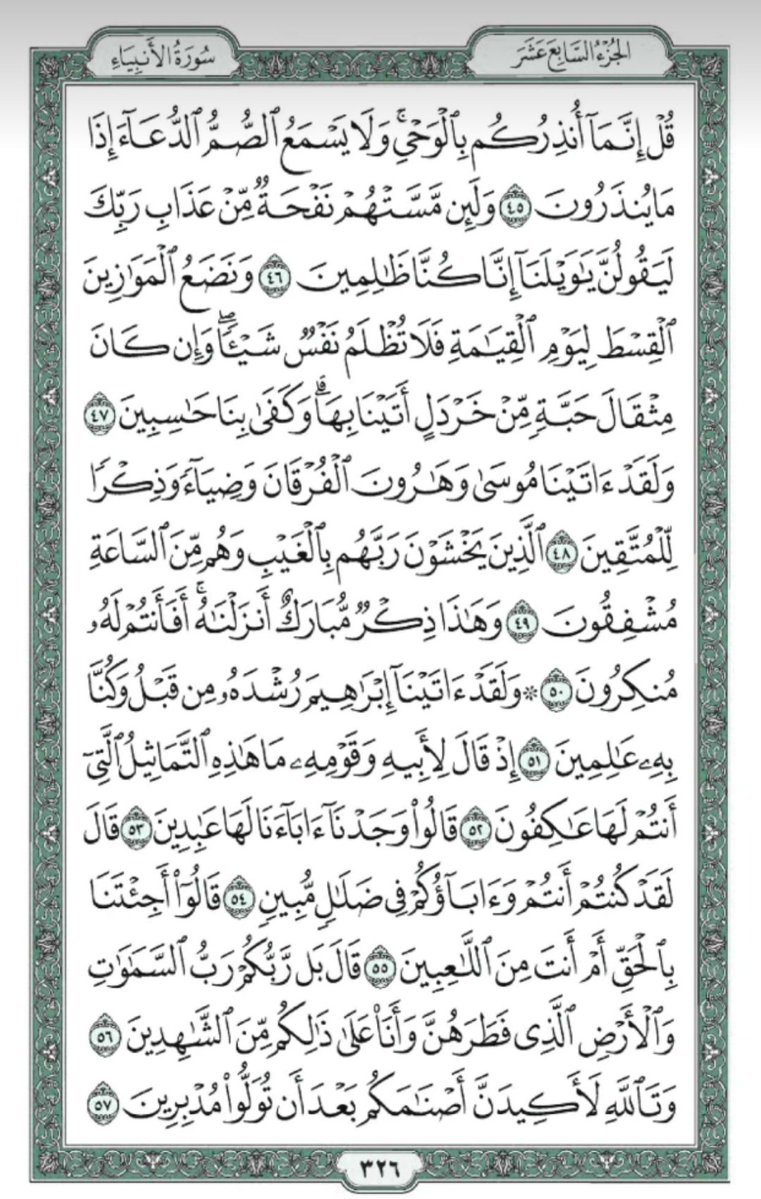 الجُزْءُ السَّابِعَ عَشَرَ
سُورَةُ الأَنبِيَاءِ
قُلْ إِنَّمَآ أُنذِرُكُم بِٱلْوَحْىِۚ وَلَا يَسْمَعُ ٱلصُّمُّ ٱلدُّعَآءَ إِذَا
مَا يُنذَرُونَ ٤٥ وَلَئِن مَّسَّتْهُمْ نَفْحَةٌ مِّنْ عَذَابِ رَبِّكَ
لَيَقُولُنَّ يَٰوَيْلَنَآ إِنَّا كُنَّا ظَٰلِمِينَ ٤٦ وَنَضَعُ ٱلْمَوَٰزِينَ
ٱلْقِسْطَ لِيَوْمِ ٱلْقِيَٰمَةِ فَلَا تُظْلَمُ نَفْسٌ شَيْـًٔاۖ وَإِن كَانَ
مِثْقَالَ حَبَّةٍ مِّنْ خَرْدَلٍ أَتَيْنَا بِهَاۗ وَكَفَىٰ بِنَا حَٰسِبِينَ ٤٧
وَلَقَدْ ءَاتَيْنَا مُوسَىٰ وَهَٰرُونَ ٱلْفُرْقَانَ وَضِيَآءً وَذِكْرًا
لِّلْمُتَّقِينَ ٤٨ ٱلَّذِينَ يَخْشَوْنَ رَبَّهُم بِٱلْغَيْبِ وَهُم مِّنَ ٱلسَّاعَةِ
مُشْفِقُونَ ٤٩ وَهَٰذَا ذِكْرٌ مُّبَارَكٌ أَنزَلْنَٰهُۚ أَفَأَنتُمْ لَهُۥ
مُنكِرُونَ ٥٠ ۞ وَلَقَدْ ءَاتَيْنَآ إِبْرَٰهِيمَ رُشْدَهُۥ مِن قَبْلُ وَكُنَّا
بِهِۦ عَٰلِمِينَ ٥١ إِذْ قَالَ لِأَبِيهِ وَقَوْمِهِۦ مَا هَٰذِهِ ٱلتَّمَاثِيلُ ٱلَّتِىٓ
أَنتُمْ لَهَا عَٰكِفُونَ ٥٢ قَالُوا۟ وَجَدْنَآ ءَابَآءَنَا لَهَا عَٰبِدِينَ ٥٣ قَالَ
لَقَدْ كُنتُمْ أَنتُمْ وَءَابَآؤُكُمْ فِى ضَلَٰلٍ مُّبِينٍ ٥٤ قَالُوٓا۟ أَجِئْتَنَا
بِٱلْحَقِّ أَمْ أَنتَ مِنَ ٱللَّٰعِبِينَ ٥٥ قَالَ بَل رَّبُّكُمْ رَبُّ ٱلسَّمَٰوَٰتِ
وَٱلْأَرْضِ ٱلَّذِى فَطَرَهُنَّ وَأَنَا۠ عَلَىٰ ذَٰلِكُم مِّنَ ٱلشَّٰهِدِينَ ٥٦
وَتَٱللَّهِ لَأَكِيدَنَّ أَصْنَٰمَكُم بَعْدَ أَن تُوَلُّوا۟ مُدْبِرِينَ ٥٧
٣٢٦